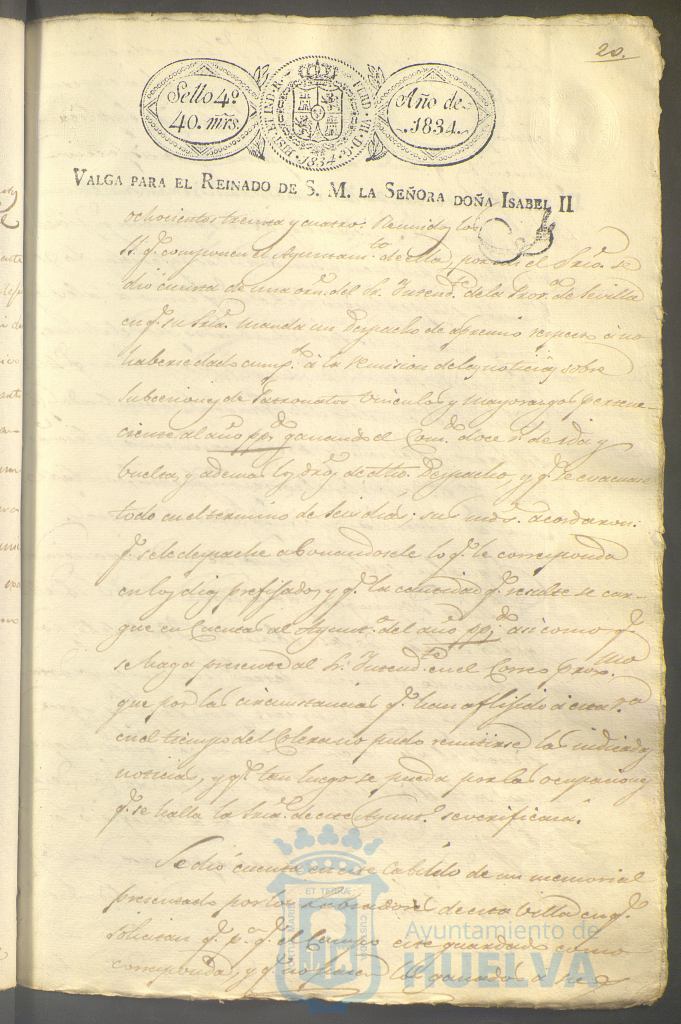 20.
Sello 4º
40. mrs.
HISP. ET IND. R. FERD. VII. D. G.
1834
Año de
1834.
VALGA PARA EL REINADO DE S. M. LA SEÑORA DOÑA ISABEL II
ochocientos treinta y cuatro: Reunidos los
SS. q.e componen el Ayuntam.to de ella, por mi el Srio. se
dio cuenta de una orn. del Sr. Intend.te de la Prov.a de Sevilla
en q.e su Sria. manda un Despacho de apremio respecto á no
haberse dado cump.to á la remision de las noticias sobre
subcesiones de Patronatos vinculos y mayorazgos pertene-
ciente al año pp.do ganando el Com.do doce r.s de ida y
buelta, y ademas los dros. de dho. Despacho, y q.e se evacue
todo en el termino de seis dias: sus mds. acordaron:
q.e se le despache abonandosele lo q.e le corresponda
en los dias prefijados, y q.e la cantidad q.e resulte se car-
gue en Cuentas al Ayunt.o del año pp.do; asi como q.e
se haga presente al Sr. Intend.te en el Correo prox.mo
que por las circunstancias q.e han aflijido á esta v.a
en el tiempo del Colera no pudo remitirse las indicadas
noticias, y q.e tan luego se pueda por las ocupaciones
q.e se halla la Sria. de este Ayunt.o se verificará.
Se dió cuenta en este Cabildo de un memorial
presentado por los Labradores de esta Villa en q.e
solicitan q.e p.a q.e el Campo este guardado como
corresponda, y q.e no los ganados
Ayuntamiento de
HUELVA